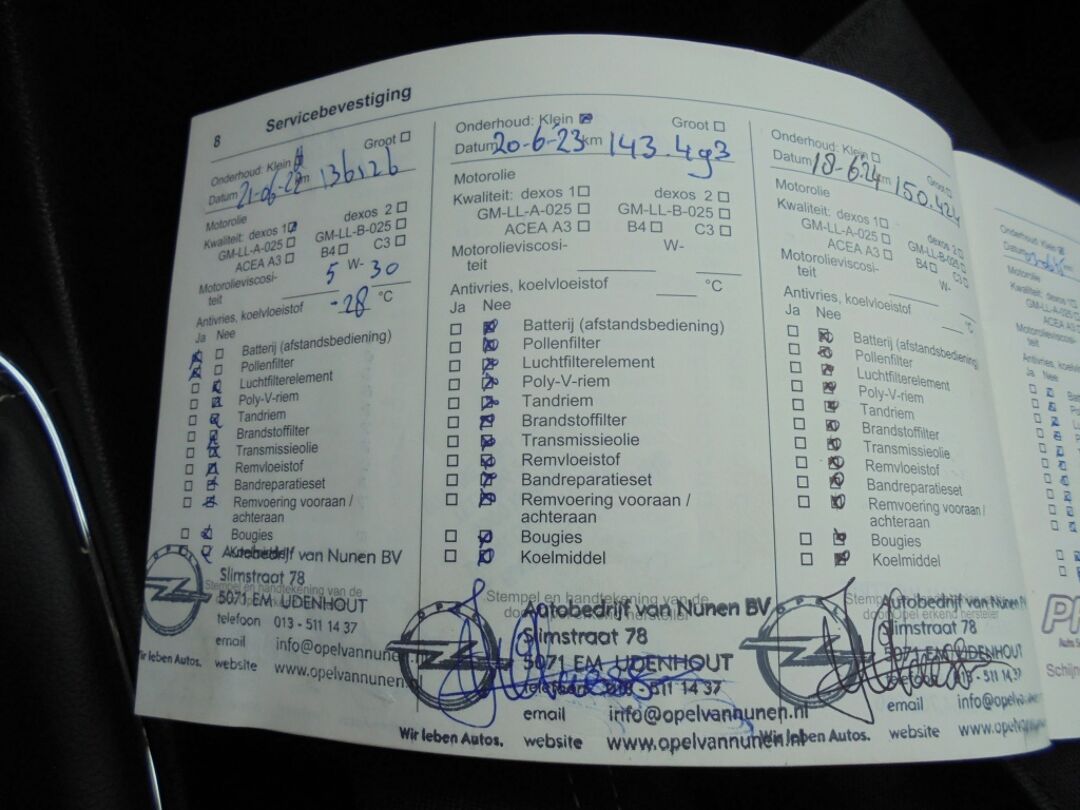 8 Servicebevestiging
Onderhoud: Klein Groot
Datum 21-06-22 km 136126
Motorolie
Kwaliteit: dexos 1 dexos 2
GM-LL-A-025 GM-LL-B-025
ACEA A3 B4 C3
Motorolieviscosi-
teit 5 W- 30
Antivries, koelvloeistof -28 °C
Ja Nee
Batterij (afstandsbediening)
Pollenfilter
Luchtfilterelement
Poly-V-riem
Tandriem
Brandstoffilter
Transmissieolie
Remvloeistof
Bandreparatieset
Remvoering vooraan /
achteraan
Bougies
Koelmiddel
Stempel en handtekening van de
Autobedrijf van Nunen BV
Slimstraat 78
5071 EM UDENHOUT
telefoon 013 - 511 14 37
email info@opelvannunen.nl
Wir leben Autos. website www.opelvannunen.nl
Onderhoud: Klein Groot
Datum 20-6-23 km 143.493
Motorolie
Kwaliteit: dexos 1 dexos 2
GM-LL-A-025 GM-LL-B-025
ACEA A3 B4 C3
Motorolieviscosi- W-
teit
Antivries, koelvloeistof °C
Ja Nee
Batterij (afstandsbediening)
Pollenfilter
Luchtfilterelement
Poly-V-riem
Tandriem
Brandstoffilter
Transmissieolie
Remvloeistof
Bandreparatieset
Remvoering vooraan /
achteraan
Bougies
Koelmiddel
Stempel en handtekening van de
door Opel erkend hersteller
OPEL
Autobedrijf van Nunen BV
Slimstraat 78
5071 EM UDENHOUT
telefoon 013 - 511 14 37
email info@opelvannunen.nl
Wir leben Autos. website www.opelvannunen.nl
Onderhoud: Klein Groot
Datum 18-6-24 km 150.424
Motorolie
Kwaliteit: dexos 1 dexos 2
GM-LL-A-025 GM-LL-B-025
ACEA A3 B4 C3
Motorolieviscosi- W-
teit
Antivries, koelvloeistof °C
Ja Nee
Batterij (afstandsbediening)
Pollenfilter
Luchtfilterelement
Poly-V-riem
Tandriem
Brandstoffilter
Transmissieolie
Remvloeistof
Bandreparatieset
Remvoering vooraan /
achteraan
Bougies
Koelmiddel
Stempel en handtekening van de
door Opel erkend hersteller
OPEL
Autobedrijf van Nunen
Slimstraat 78
5071 EM UDENHOUT
telefoon 013 - 511 14 37
email info@opelvannunen
Wir leben Autos. website www.opelvannunen
Onderhoud: Klein
Datum
Motorolie
Kwaliteit: dexos 1
GM-LL-A-025
ACEA A3
Motorolieviscosi-
teit
Antivries,
Ja Nee